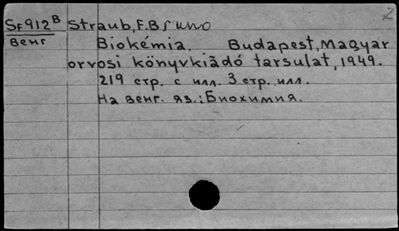 Sf912B Straub, F.Bruno
Венг Biokémia. Budapest, Magyar
orvosi könyvkiadó tarsulat, 1949.
219 стр. с илл. 3 стр. илл.
На венг. яз.: Биохимия.